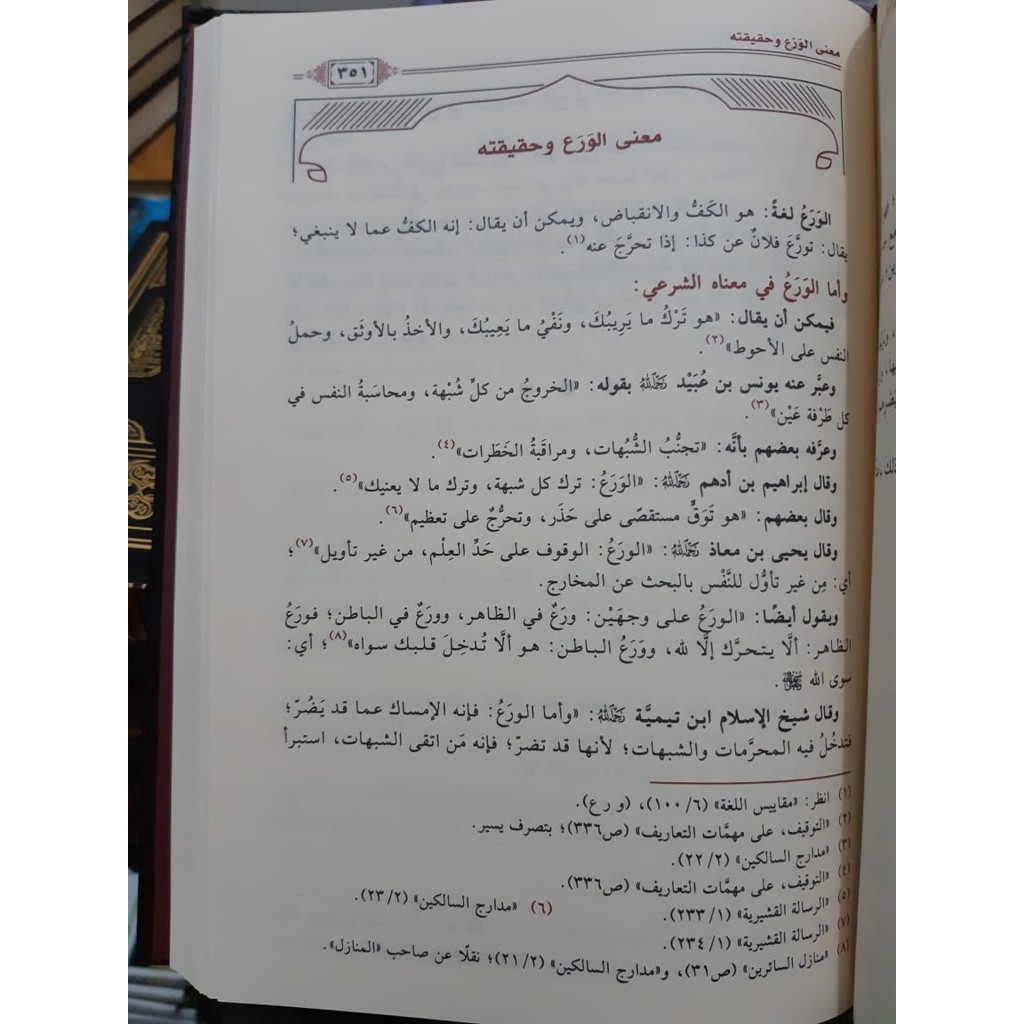 معنى الوَرَع وحقيقته
٣٥١
معنى الوَرَع وحقيقته
الوَرَعُ لغةً: هو الكَفُّ والانقباض، ويمكن أن يقال: إنه الكفُّ عما لا ينبغي؛
يقال: تورَّعَ فلانٌ عن كذا: إذا تحرَّجَ عنه(١).
وأما الوَرَعُ في معناه الشرعي:
فيمكن أن يقال: «هو تَرْكُ ما يَرِيبُكَ، ونَفْيُ ما يَعِيبُكَ، والأخذُ بالأوثَق، وحملُ
النفس على الأحوط»(٢).
وعبَّر عنه يونس بن عُبَيْد رَحِمَهُ اللَّهُ بقوله: «الخروجُ من كلِّ شُبْهة، ومحاسَبةُ النفس في
كل طَرْفة عَيْن»(٣).
وعرَّفه بعضهم بأنَّه: «تجنُّبُ الشُّبُهات، ومراقَبةُ الخَطَرات»(٤).
وقال إبراهيم بن أدهم رَحِمَهُ اللَّهُ: «الوَرَعُ: ترك كل شبهة، وترك ما لا يعنيك»(٥).
وقال بعضهم: «هو تَوَقٍّ مستقصًى على حَذَر، وتحرُّجٌ على تعظيم»(٦).
وقال يحيى بن معاذ رَحِمَهُ اللَّهُ: «الورَعُ: الوقوف على حَدِّ العِلْم، من غير تأويل»(٧)؛
أي: مِن غير تأوُّل للنَّفْس بالبحث عن المخارج.
ويقول أيضًا: «الورَعُ على وجهَيْن: ورَعٌ في الظاهر، وورَعٌ في الباطن؛ فورَعُ
الظاهر: ألَّا يتحرَّك إلَّا لله، ووَرَعُ الباطن: هو ألَّا تُدخِلَ قلبك سواه»(٨)؛ أي:
سوى الله.
وقال شيخ الإسلام ابن تيميَّة رَحِمَهُ اللَّهُ: «وأما الورَعُ: فإنه الإمساك عما قد يَضُرّ؛
فتدخُلُ فيه المحرَّمات والشبهات؛ لأنها قد تضرّ؛ فإنه مَن اتقى الشبهات، استبرأ
(١) انظر: «مقاييس اللغة» (٦/ ١٠٠)، (و ر ع).
(٢) «التوقيف، على مهمَّات التعاريف» (ص٣٣٦)؛ بتصرف يسير.
(٣) «مدارج السالكين» (٢/ ٢٢).
(٤) «التوقيف، على مهمَّات التعاريف» (ص٣٣٦).
(٥) «الرسالة القشيرية» (١/ ٢٣٣). (٦) «مدارج السالكين» (٢/ ٢٣).
(٧) «الرسالة القشيرية» (١/ ٢٣٤).
(٨) «منازل السائرين» (ص٣١)، و«مدارج السالكين» (٢/ ٢١)؛ نقلًا عن صاحب «المنازل».